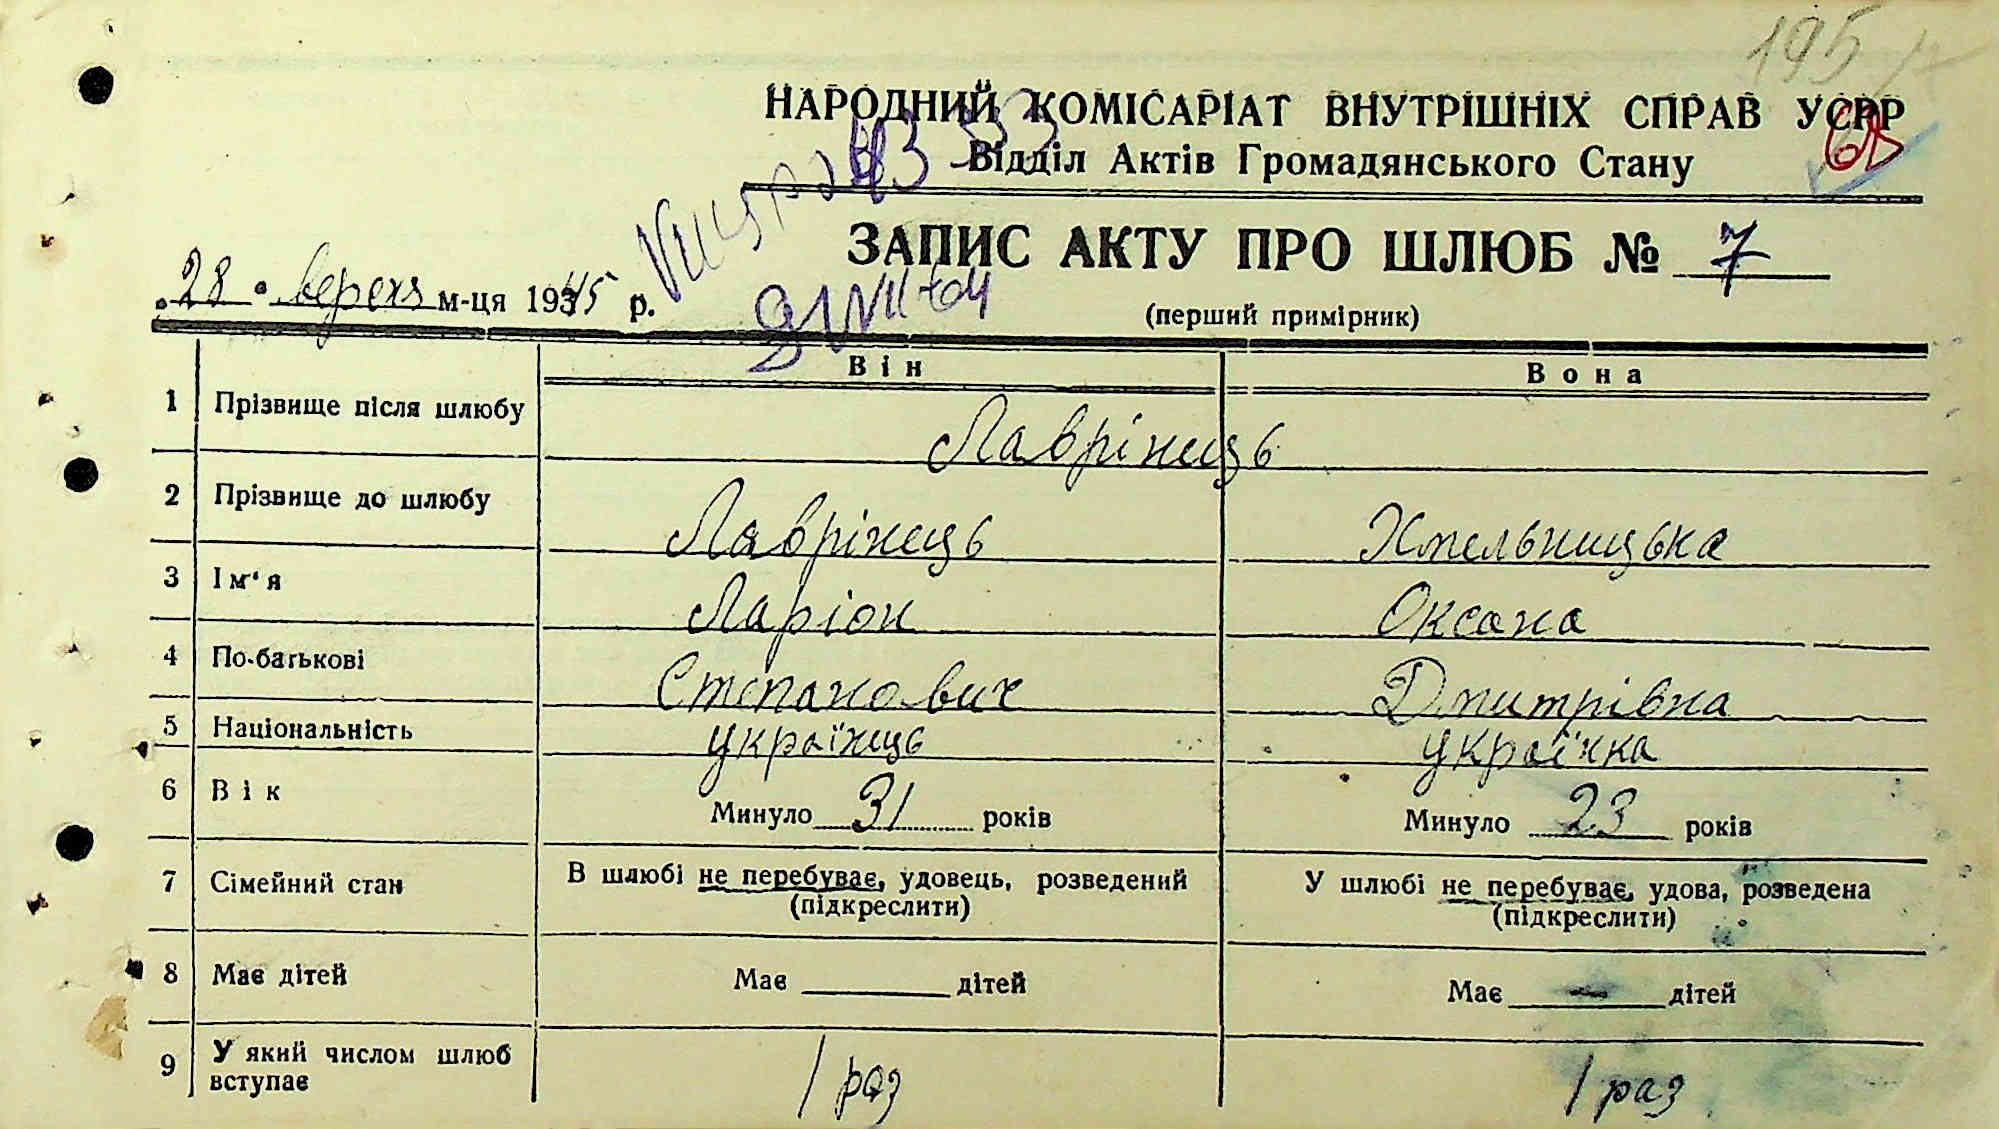 195
НАРОДНИЙ КОМІСАРІАТ ВНУТРІШНІХ СПРАВ УСРР
Відділ Актів Громадянського Стану
ЗАПИС АКТУ ПРО ШЛЮБ № 7
28 вересня м-ця 1945 р.
(перший примірник)
Він Вона
1 Прізвище після шлюбу Лаврінець
2 Прізвище до шлюбу Лаврінець Хмельницька
3 Ім'я Ларіон Оксана
4 По-батькові Степанович Дмитрівна
5 Національність українець українка
6 Вік Минуло 31 років Минуло 23 років
7 Сімейний стан В шлюбі не перебуває, удовець, розведений (підкреслити) У шлюбі не перебуває, удова, розведена (підкреслити)
8 Має дітей Має дітей Має — дітей
9 У який числом шлюб вступає 1 раз 1 раз